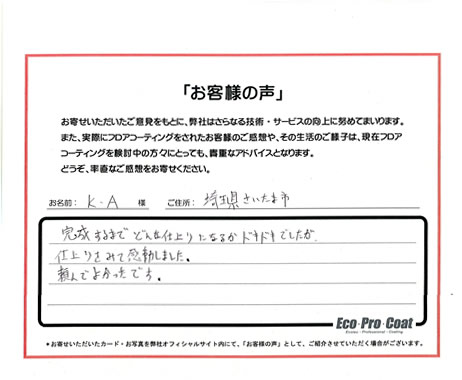 「お客様の声」
お寄せいただいたご意見をもとに、弊社はさらなる技術・サービスの向上に努めてまいります。
また、実際にフロアコーティングをされたお客様のご感想や、その生活のご様子は、現在フロア
コーティングを検討中の方々にとっても、貴重なアドバイスとなります。
どうぞ、率直なご感想をお寄せください。
お名前: K-A 様 ご住所: 埼玉県さいたま市
完成するまでどんな仕上りになるかドキドキでしたが、
仕上りをみて感動しました。
頼んでよかったです。
Eco·Pro·Coat
*お寄せいただいたカード・お写真を弊社オフィシャルサイト内にて、「お客様の声」として、ご紹介させていただく場合がございます。